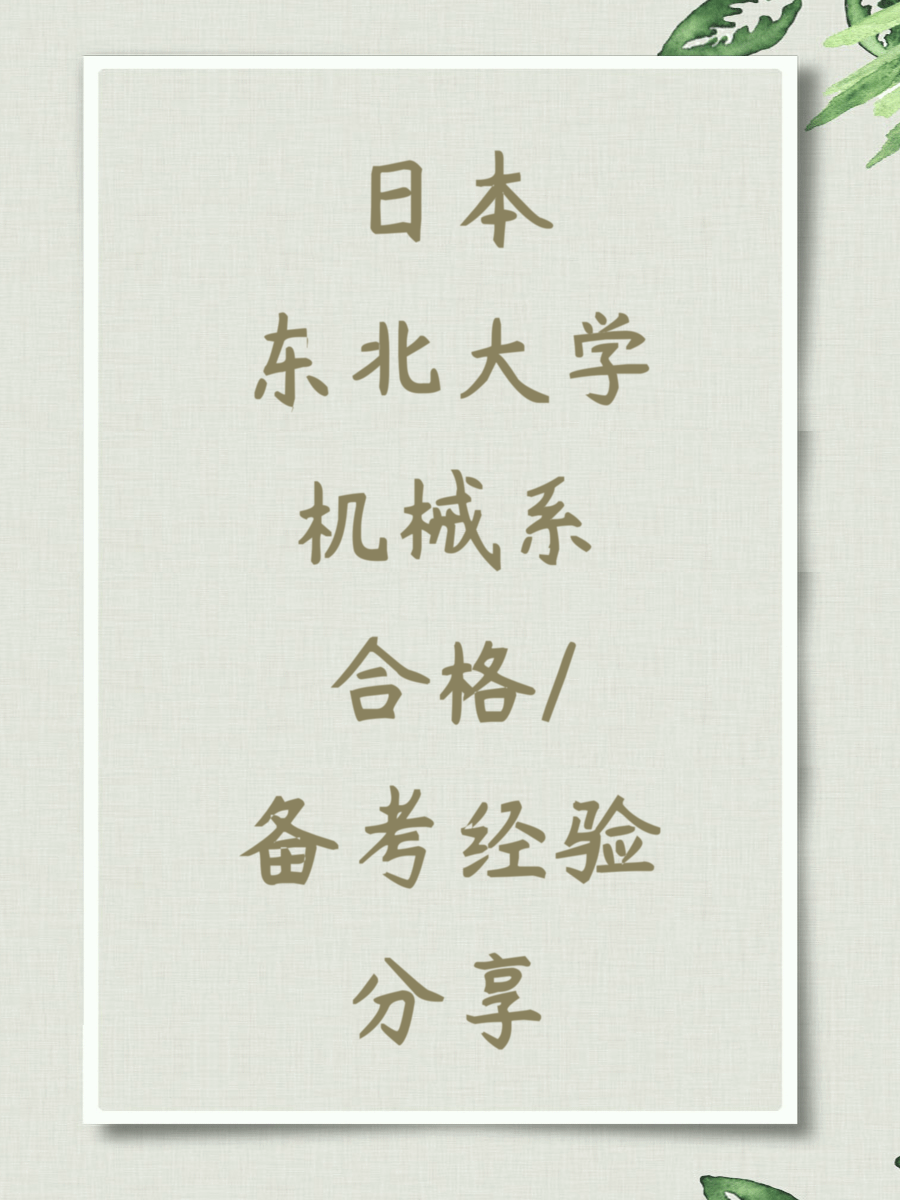 日本
东北大学
机械系
合格/
备考经验
分享